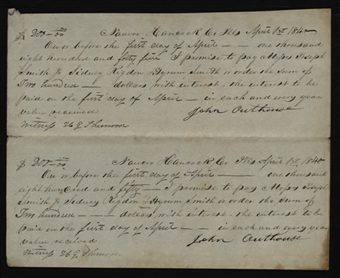 $ 200-00 Nauvoo Hancock Co Ills April 1st 1840
On or before the first day of April - - one thousand
eight hundred and forty five I promise to pay Messrs Joseph
Smith Jr Sidney Rigdon Hyrum Smith or order the sum of
Two hundred - dollars, with interest, the interest to be
paid on the first day of April - in each and every year
value received
John Outhouse
Witness
$ 200-00 Nauvoo Hancock Co Ills April 1st 1840
On or before the first day of April - one thousand
eight hundred and fifty - I promise to pay Messrs Joseph
Smith Jr Sidney Rigdon Hyrum Smith or order the sum of
Two hundred - dollars with interest - the interest to be
paid on the first day of April - in each and every year
value received
John Outhouse
Witness